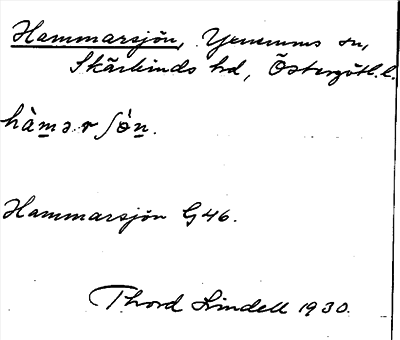 Hammarsjön, Yxnerums sn,
Skärkinds hd, Östergötl. l.
hàmər ʃön.
Hammarsjön G46.
Thord Lindell 1930.